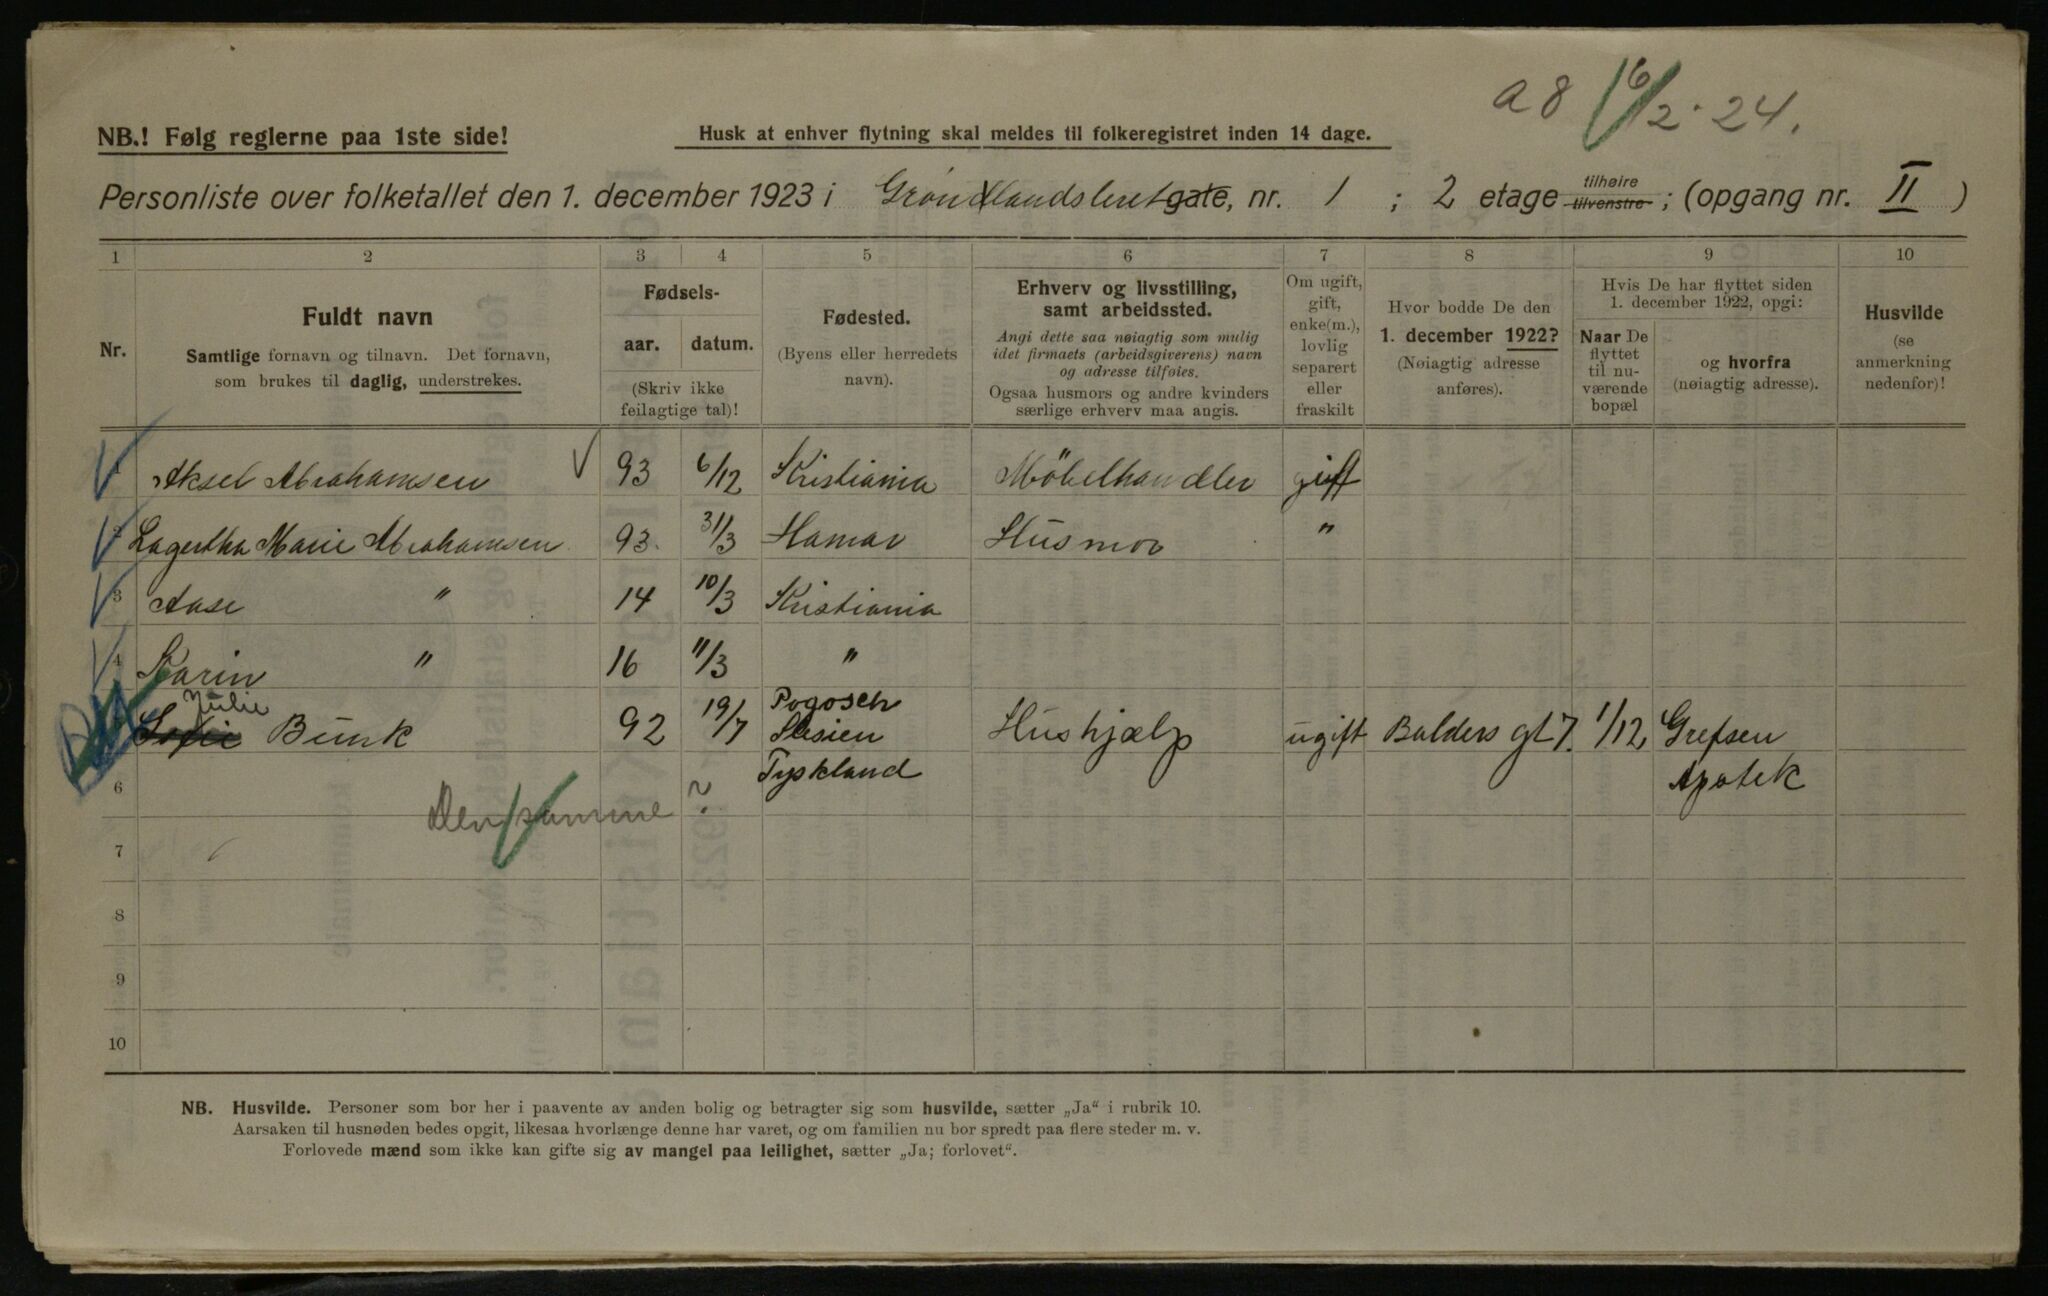 a 8 6/2 24.
NB.! Følg reglerne paa 1ste side!
Husk at enhver flytning skal meldes til folkeregistret inden 14 dage.
Personliste over folketallet den 1. december 1923 i Grønlandsleret gate, nr. 1 ; 2 etage tilhøire tilvenstre ; (opgang nr. II )
1 2 3 4 5 6 7 8 9 10
Nr.
Fuldt navn
Samtlige fornavn og tilnavn. Det fornavn,
som brukes til daglig, understrekes.
Fødsels-
aar. datum.
(Skriv ikke
feilagtige tal)!
Fødested.
(Byens eller herredets
navn).
Erhverv og livsstilling,
samt arbeidssted.
Angi dette saa nøiagtig som mulig
idet firmaets (arbeidsgiverens) navn
og adresse tilføies.
Ogsaa husmors og andre kvinders
særlige erhverv maa angis.
Om ugift,
gift,
enke(m.),
lovlig
separert
eller
fraskilt
Hvor bodde De den
1. december 1922?
(Nøiagtig adresse
anføres).
Hvis De har flyttet siden
1. december 1922, opgi:
Naar De
flyttet
til nu-
værende
bopæl
og hvorfra
(nøiagtig adresse).
Husvilde
(se
anmerkning
nedenfor)!
1 Aksel Abrahamsen 93 6/12 Kristiania Möbelhandler gift
2 Lagertha Marie Abrahamsen 93. 31/3 Hamar Husmor "
3 Aase " 14 10/3 Kristiania
4 Karin " 16 11/3 "
Julie
Sofie Bunk 92 19/7 Pogosch Slesien Tyskland Hushjælp ugift Balders gt 7. 1/12 Grefsen Apotek
6
Den samme ?
7
8
9
10
NB. Husvilde. Personer som bor her i paavente av anden bolig og betragter sig som husvilde, sætter „Ja“ i rubrik 10.
Aarsaken til husnøden bedes opgit, likesaa hvorlænge denne har varet, og om familien nu bor spredt paa flere steder m. v.
Forlovede mænd som ikke kan gifte sig av mangel paa leilighet, sætter „Ja; forlovet“.